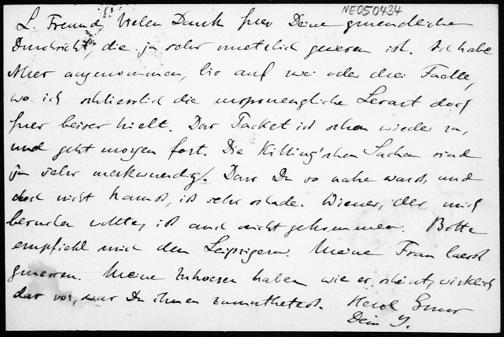 NE050434
L. Freund, Vielen Dank fuer Deine gruendliche
Durchsicht, die ja sehr nuetzlich gewesen ist. Ich habe
Alles angenommen, bis auf zwei oder drei Faelle,
wo ich schliesslich die urspruengliche Lesart doch
fuer besser hielt. Das Packet ist schon wieder zu,
und geht morgen fort. Die Killing'schen Sachen sind
ja sehr merkwuerdig. Dass Du so nahe warst, und
doch nicht kamst, ist sehr schade. Wiener, der mich
besuchen wollte, ist auch nicht gekommen. Bitte
empfiehl mich den Leipzigern. Meine Frau laesst
gruessen. Meine Zuhoerer haben wie es scheint, wirklich
das vor, was Du ihnen zumuthetest. Herzl. Gruss
Dein